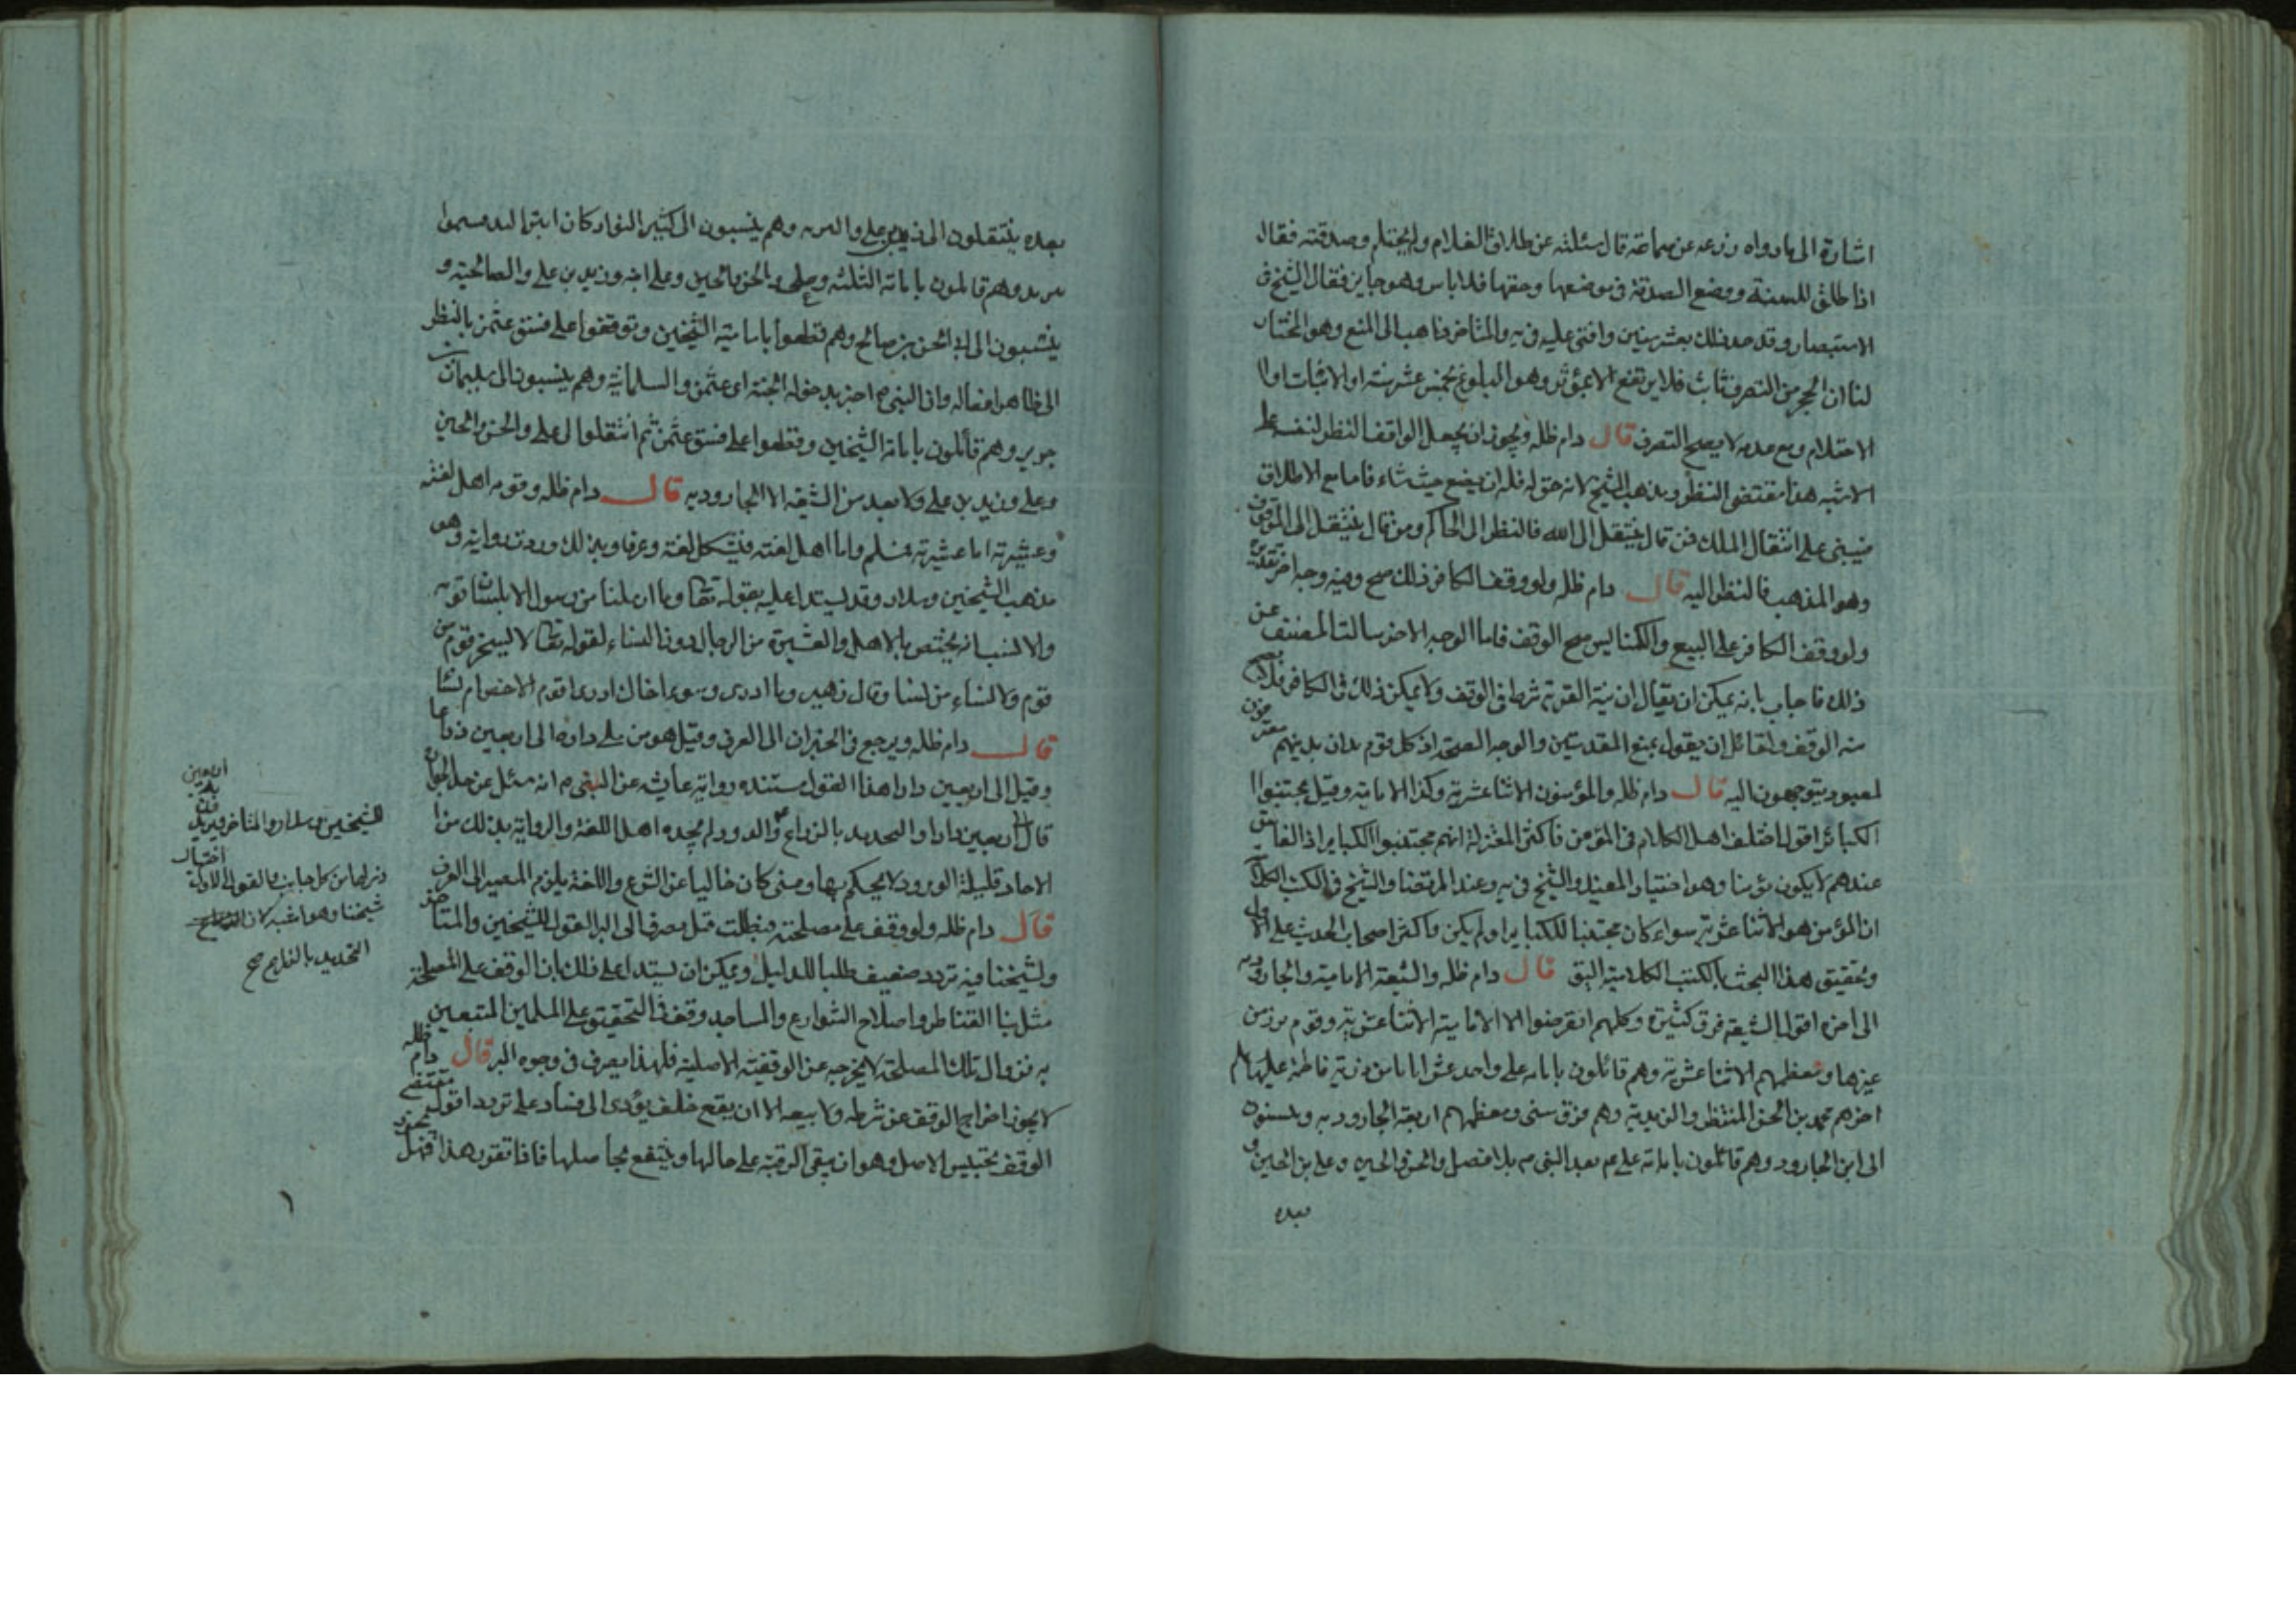 اشارة الى ما رواه زرعه عن سماعة قال سئلته عن طلاق الغلام ولم يحتلم وصدقته فقال
اذا طلق للسنة ووضع الصدقة فى موضعها وحقها فلا باس وهو جايز فقال الشيخ فى
الاستبصار وقد حد ذلك بعشر سنين وافتى عليه فى يه والمتاخر ذاهب الى المنع وهو المختار
لنا ان الحجر من التصرف ثابت فلا يرتفع الا وهو البلوغ بخمس عشر سنة او الانبات او
الاحتلام ومع عدمه لا يصح التصرف قال دام ظله ويجوز ان يجعل الواقف النظر لنفسه على
الاشبه هذا مقتضى النظر ومذهب الشيخ لانه حق له فله ان يضع حيث شاء فاما مع الاطلاق
فيبنى على انتقال الملك فمن قال ينتقل الى الله فالنظر الى الحاكم ومن قال ينتقل الى الموقوف
وهو المذهب فالنظر اليه قال دام ظله ولو وقف الكافر ذلك صح وفيه وجه اخر
ولو وقف الكافر على البيع والكنايس صح الوقف فاما الوجه الاخر سالت المصنف عن
ذلك فاجاب بانه يمكن ان يقال ان نية القربة شرط فى الوقف ولا يمكن ذلك فى الكافر فلا يصح
منه الوقف ولقائل ان يقول بمنع المقدمتين والوجه الصحة اذ كل قوم بدان بدينهم
لمعبود يتوجهون اليه قال دام ظله والمؤمنون الاثنا عشرية وكذا الامامية وقيل مجتنبوا
الكبائر اقول اختلف اهل الكلام فى المؤمن فاكثر المعتزلة انهم مجتنبوا الكباير اذ الفاسق
عندهم لا يكون مؤمنا وهو اختيار المفيد والشيخ فى يه وعند المرتضا والشيخ فى الكتب
ان المؤمن هو الاثنا عشرية سواء كان مجتنبا للكباير او لم يكن واكثر اصحاب الحديث على الاول
وتحقيق هذا البحث بالكتب الكلامية اليق قال دام ظله والشيعة الامامية والجارودية
الى اخره اقول الشيعة فرق كثيرة وكلهم انقرضوا الا الامامية الاثنا عشرية وقوم من
غيرها ومعظمهم الاثنا عشرية وهم قائلون بامامة على واحد عشر اماما من ذرية فاطمة عليها
اخرهم محمد بن الحسن المنتظر والزيدية وهم فرق شتى ومعظمهم اربعة الجارودية وينسبون
الى ابن الجارود وهم قائلون بامامة على عم بعد النبى ص بلا فصل والحسن والحسين وعلى بن الحسين و
بعده
بعده ينتقلون الى زيد بن على وهم ينسبون الى كثير النوا وكان ابتر اليد فسموا
وهم قائلون بامامة الثلثه وعلى والحسن والحسين وعلى ابنه وزيد بن على والصالحية و
ينسبون الى الحسن بن صالح وهم قطعوا بامامية الشيخين وتوقفوا على فسق عثمن بالنظر
الى ظاهر افعاله وان النبى ص اخبر بدخوله الجنة اى عثمن والسلمانية وهم ينسبون الى سليمان بن
جرير وهم قائلون بامامة الشيخين وقطعوا على فسق عثمن ثم انتقلوا الى على والحسن والحسين
وعلى وزيد بن على ولا يعد من الشيعة الا الجارودية قال دام ظله وقومه اهل لغته
وعشيرته اما عشيرته فمسلم واما اهل لغته فيشكل لغة وعرفا وبذلك وردت رواية وهو
مذهب الشيخين وسلار وقد يستدل عليه بقوله تعا وما ارسلنا من رسول الا بلسان قومه
والانسب انه يختص بالاهل والعشيرة من الرجال دون النساء لقوله تعا لا يسخر قوم من
قوم ولا نساء من نسا وقال زهير وما ادرى وسوف اخال ادرى اقوم ال حصن ام نسا
قال دام ظله ويرجع فى الجيران الى العرف وقيل هو من يلى داره الى اربعين ذراعا
وقيل الى اربعين دارا هذا القول مستنده رواية عايشه عن النبى ص انه سئل عن حد الجوار
قال الى اربعين دارا والتحديد بالذراع والدور لم يحده اهل اللغة والرواية بذلك من
الاحاد قليلة الورود لا يحكم بها ومتى كان خاليا عن الشرع واللغة يلزم المصير الى العرف
قال دام ظله ولو وقف على مصلحة فبطلت قيل يصرف الى البر القول للشيخين والمتاخر
ولشيخنا فيه تردد ضعيف طلبا للدليل ويمكن ان يستدل على ذلك بان الوقف على المصلحة
مثل بنا القناطر واصلاح الشوارع والمساجد وقف فى التحقيق على المسلمين المنتفعين
به فزوال تلك المصلحة لا يخرجه عن الوقفية الاصلية فلهذا يصرف فى وجوه البر قال دام ظله
لا يجوز اخراج الوقف عن شرطه ولا بيعه الا ان يقع خلف يؤدى الى فساد على تردد اقول مقتضى
الوقف تحبيس الاصل وهو ان يبقى الرقبة على حالها وينتفع بحاصلها فاذا تقرر هذا فهل يجوز
للشيخين وسلار والمتاخر
من كل جانب والقول الاول اختيار
شيخنا وهو اشبه لان
التحديد بالذراع صح